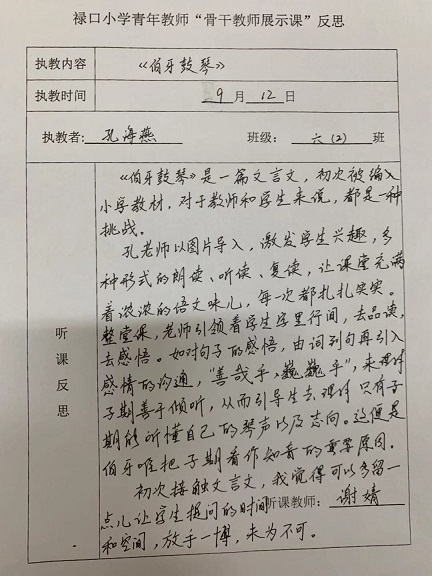 禄口小学青年教师“骨干教师展示课”反思
执教内容 《伯牙鼓琴》
执教时间 9月12日
执教者：孔海燕 班级：六（2）班
听课反思
《伯牙鼓琴》是一篇文言文，初次被编入
小学教材，对于教师和学生来说，都是一种
挑战。
孔老师以图片导入，激发学生兴趣，多
种形式的朗读、听读、复读，让课堂充满
着浓浓的语文味儿，每一次都扎扎实实。
整堂课，老师引领着学生字里行间，去品读，
去感悟。如对句子的感悟，由词到句再引入
感情的沟通，“善哉乎，巍巍乎”，来理解
子期善于倾听，从而引导生去理解只有子
期能听懂自己的琴声以及志向。这便是
伯牙唯把子期看作知音的重要原因。
初次接触文言文，我觉得可以多留一
点儿让学生提问的时间
听课教师：谢婧
和空间，放手一搏，未为不可。